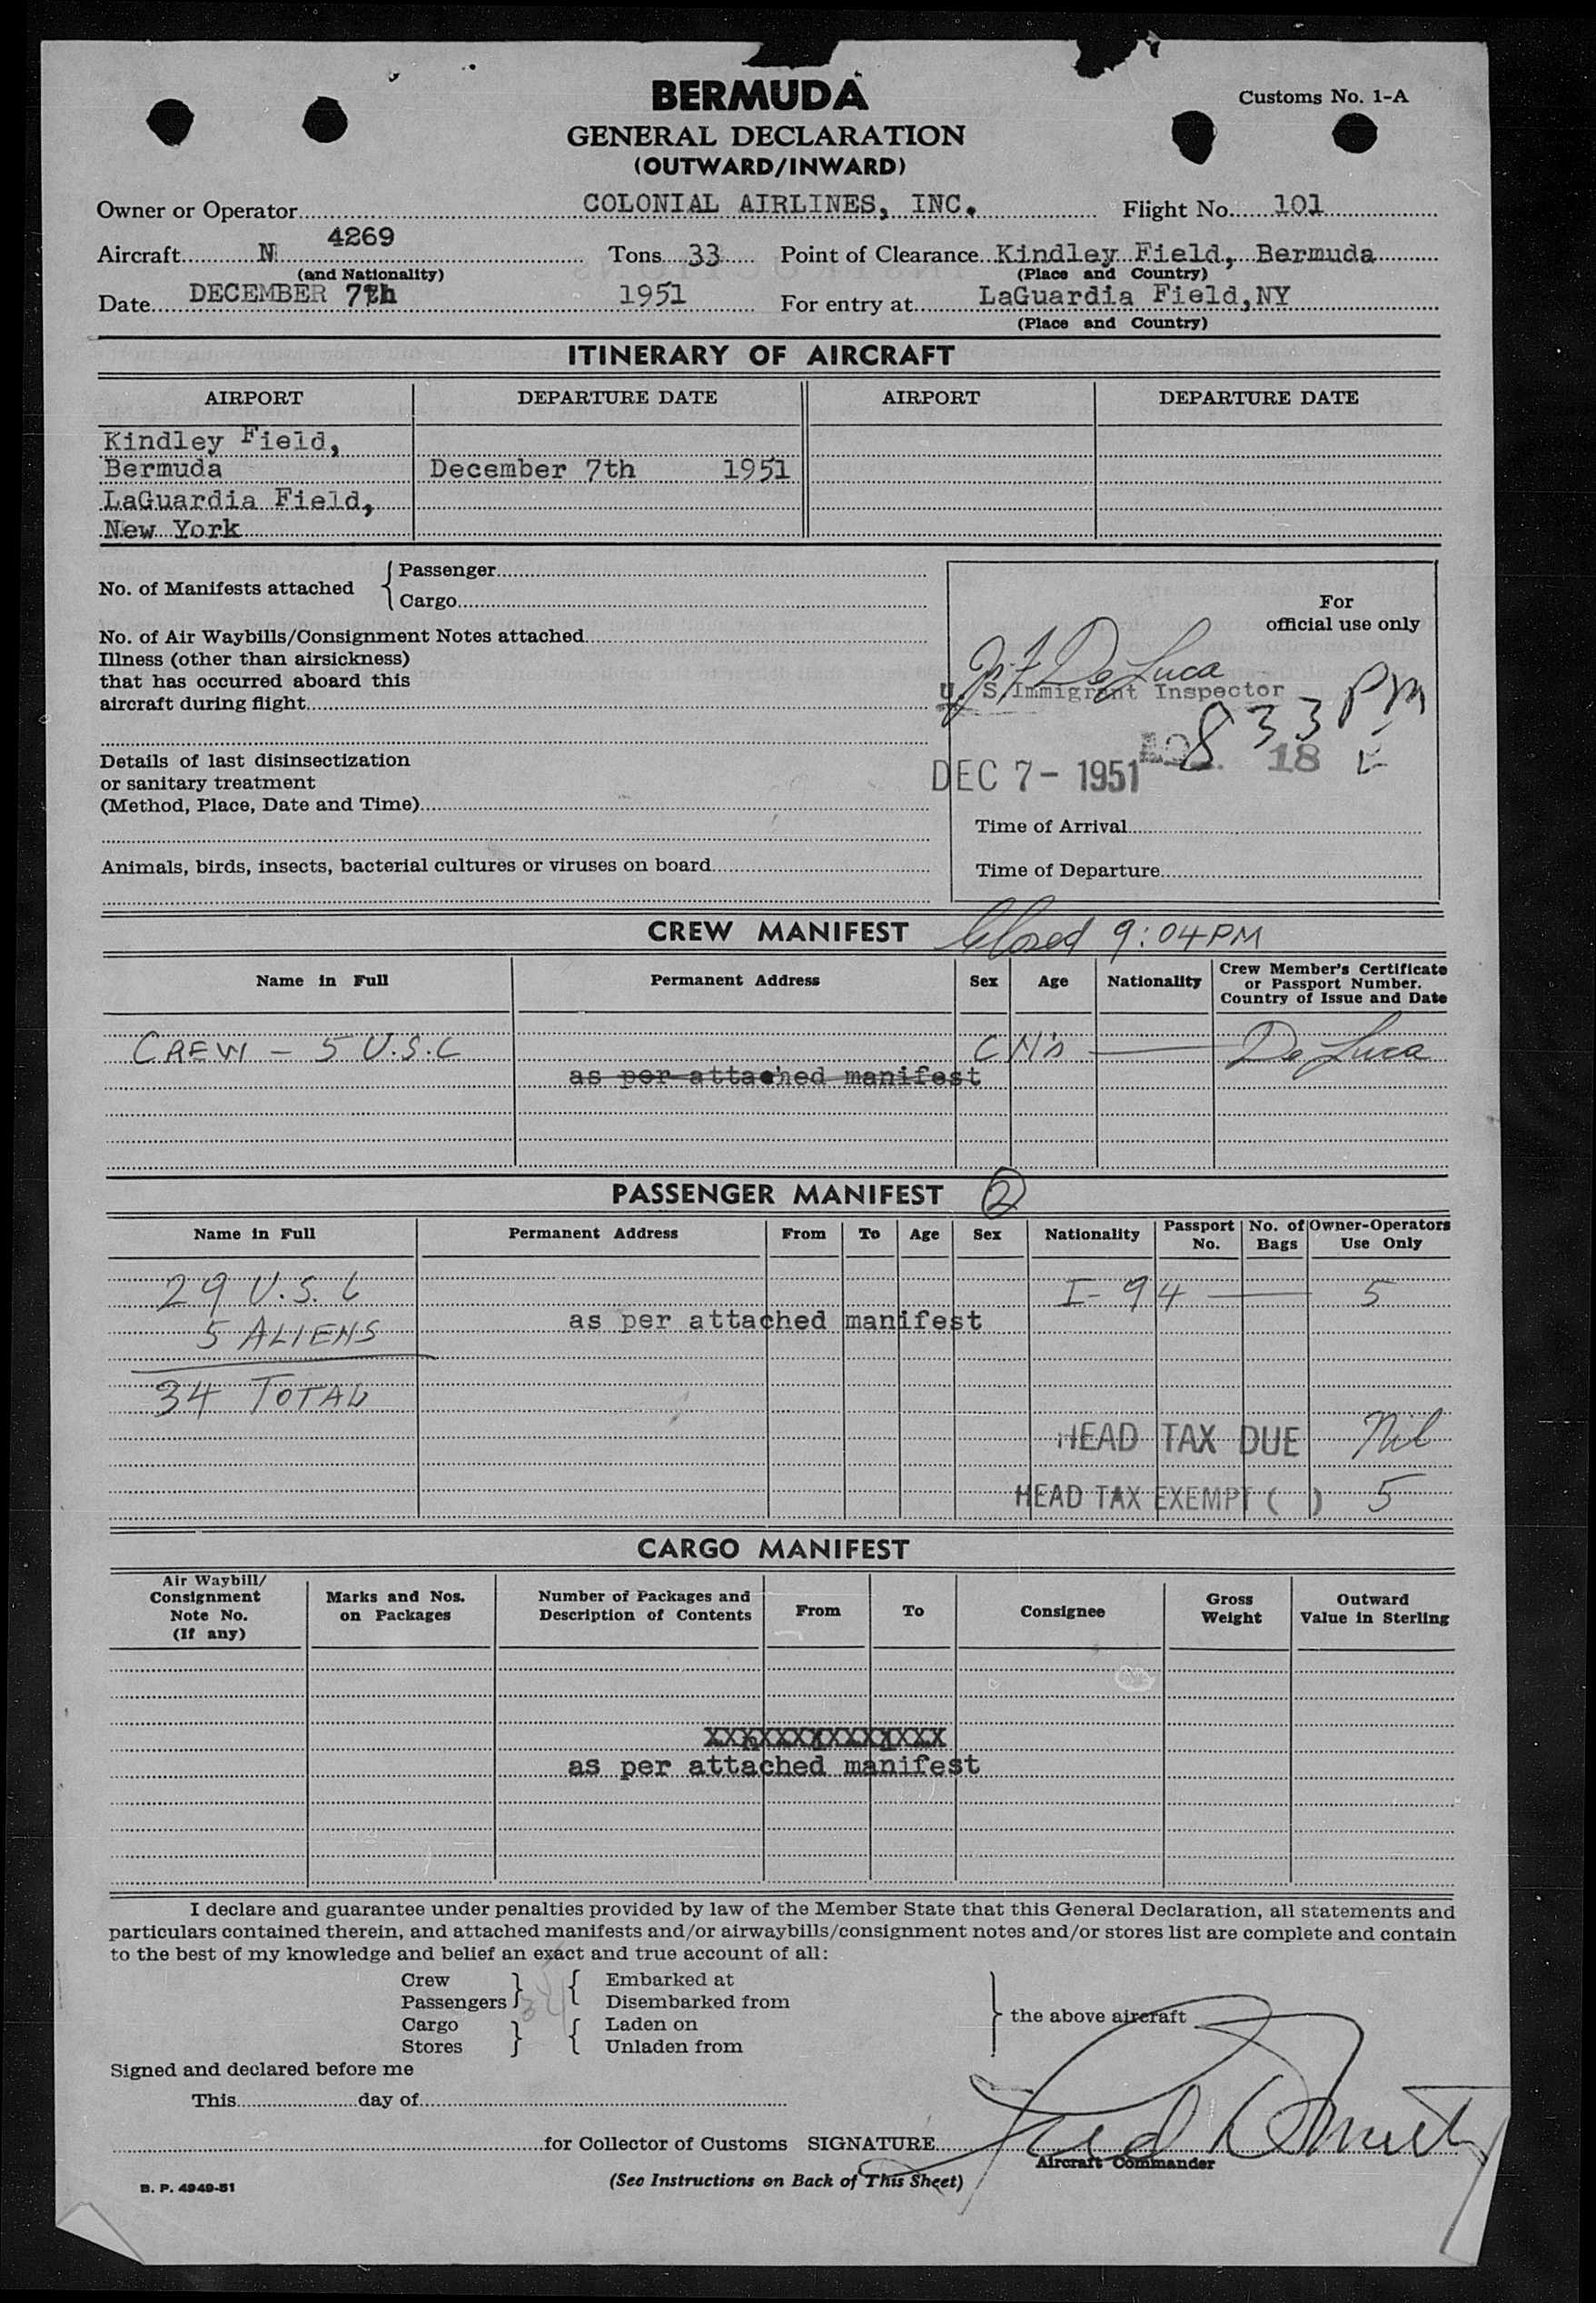 BERMUDA
Customs No. 1-A
GENERAL DECLARATION
(OUTWARD/INWARD)
Owner or Operator COLONIAL AIRLINES, INC. Flight No. 101
Aircraft N 4269 Tons 33 Point of Clearance Kindley Field, Bermuda
(and Nationality) (Place and Country)
Date DECEMBER 7th 1951 For entry at LaGuardia Field, NY
(Place and Country)
ITINERARY OF AIRCRAFT
AIRPORT DEPARTURE DATE AIRPORT DEPARTURE DATE
Kindley Field,
Bermuda December 7th 1951
LaGuardia Field,
New York
No. of Manifests attached { Passenger
Cargo
For
official use only
No. of Air Waybills/Consignment Notes attached
Illness (other than airsickness)
that has occurred aboard this
aircraft during flight
De Luca
U. S. Immigrant Inspector
833 PM
DEC 7 - 1951 18
Details of last disinsectization
or sanitary treatment
(Method, Place, Date and Time)
Time of Arrival
Animals, birds, insects, bacterial cultures or viruses on board
Time of Departure
CREW MANIFEST Closed 9:04 PM
Name in Full Permanent Address Sex Age Nationality Crew Member's Certificate
or Passport Number.
Country of Issue and Date
CREW - 5 U.S.C De Luca
as per attached manifest
PASSENGER MANIFEST 2
Name in Full Permanent Address From To Age Sex Nationality Passport No. No. of Bags Owner-Operators Use Only
29 U.S.C I-94 — 5
5 ALIENS as per attached manifest
34 TOTAL
HEAD TAX DUE Nil
HEAD TAX EXEMPT ( ) 5
CARGO MANIFEST
Air Waybill/
Consignment
Note No.
(If any)
Marks and Nos.
on Packages
Number of Packages and
Description of Contents
From To Consignee
Gross
Weight
Outward
Value in Sterling
XXXXXXXXXXXXXX
as per attached manifest
I declare and guarantee under penalties provided by law of the Member State that this General Declaration, all statements and
particulars contained therein, and attached manifests and/or airwaybills/consignment notes and/or stores list are complete and contain
to the best of my knowledge and belief an exact and true account of all:
Crew } { Embarked at
Passengers 34 Disembarked from
the above aircraft
Cargo } { Laden on
Stores Unladen from
Signed and declared before me
This day of
for Collector of Customs SIGNATURE
Aircraft Commander
(See Instructions on Back of This Sheet)
B. P. 4949-51